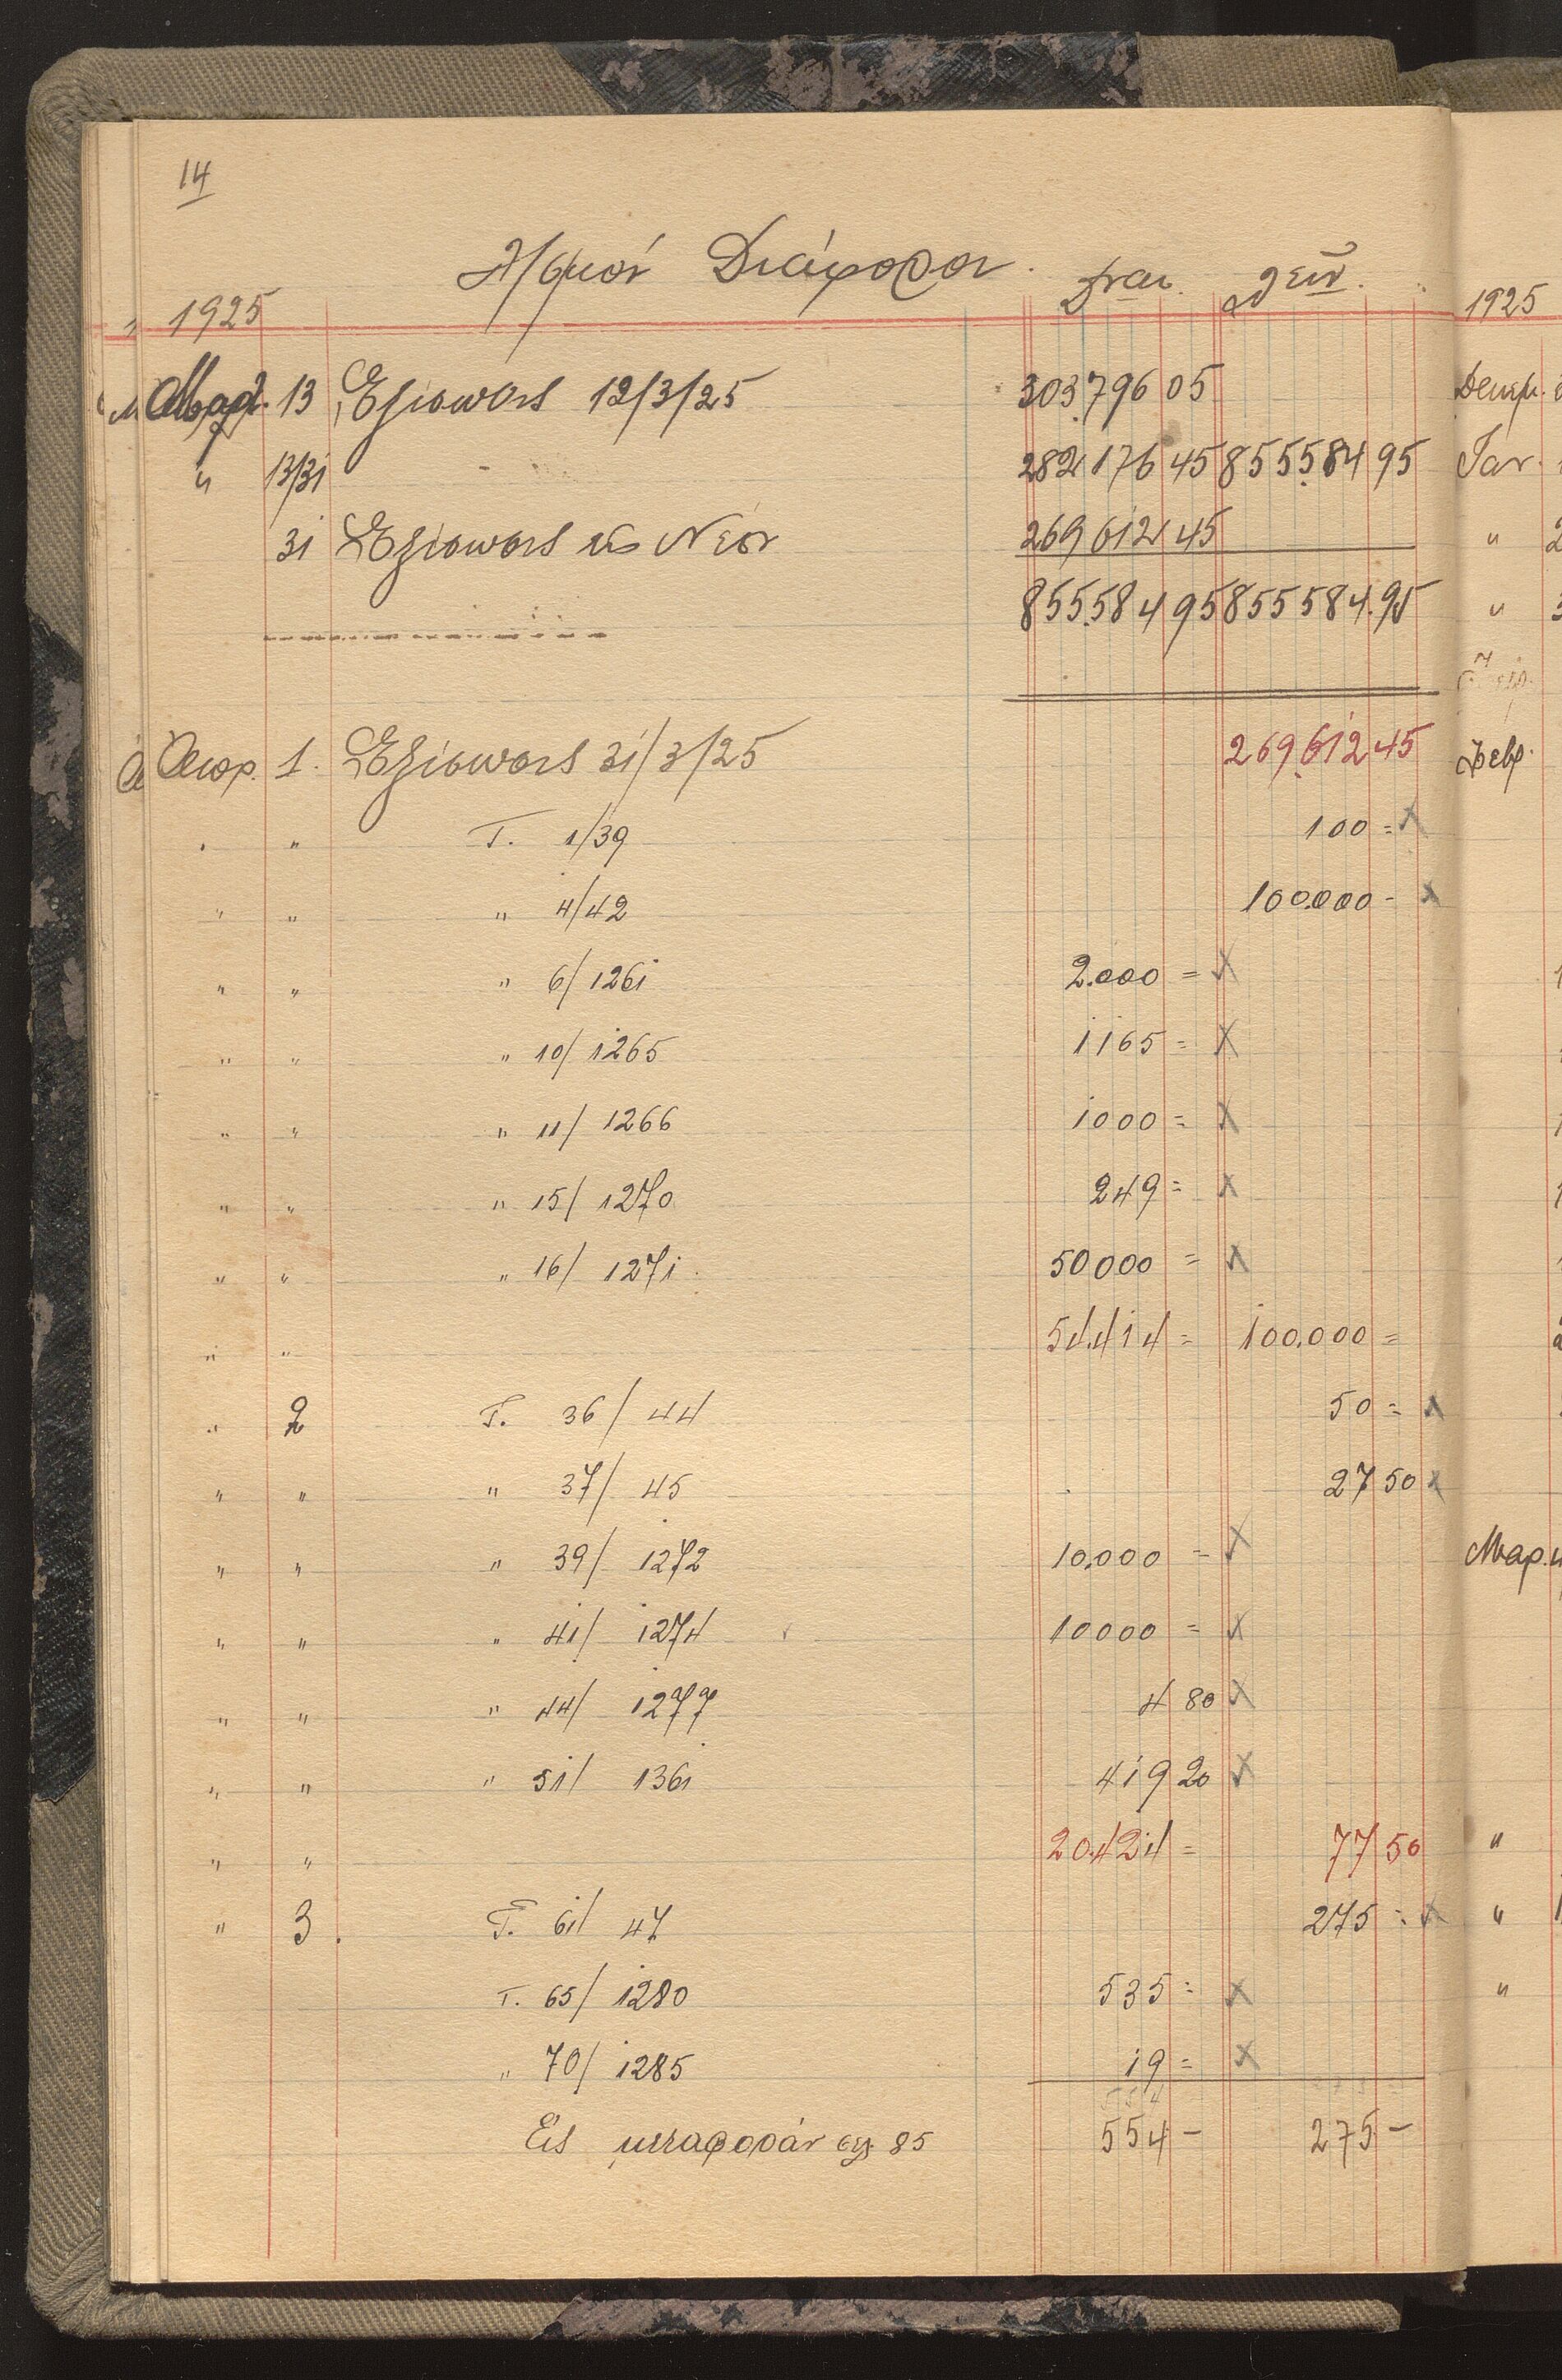 14
Λ/σμοί Διάφοροι.
1925
Μαρτ. 13 Εξίσωσις 12/3/25 303.796 05
" 13/31 282176 45 855584 95
31 Εξίσωσις εις Νέον 269612 45
855.584 95 855584.95
Απρ. 1. Εξίσωσις 31/3/25 269.612 45
" " Τ. 1/39 100 = X
" " " 4/42 100.000 - X
" " " 6/1261 2.000 = X
" " " 10/1265 1165 = X
" " " 11/1266 1000 = X
" " " 15/1270 249 = X
" " " 16/1271 50000 = X
" " 54.414 = 100.000 =
" 2 Τ. 36/44 50 = X
" " " 37/45 27 50 X
" " " 39/1272 10.000 = X
" " " 41/1274 10000 = X
" " " 44/1277 4 80 X
" " " 51/1361 419 20 X
" " 20.424 = 77 50
" 3. Τ. 61/47 275 = X
Τ. 65/1280 535 = X
" 70/1285 19 = X
Εις μεταφοράν σελ. 85 554 - 275 -
1925
Δεκεμ.
Ιαν.
"
"
Φεβρ.
Μαρ.
"
"
"